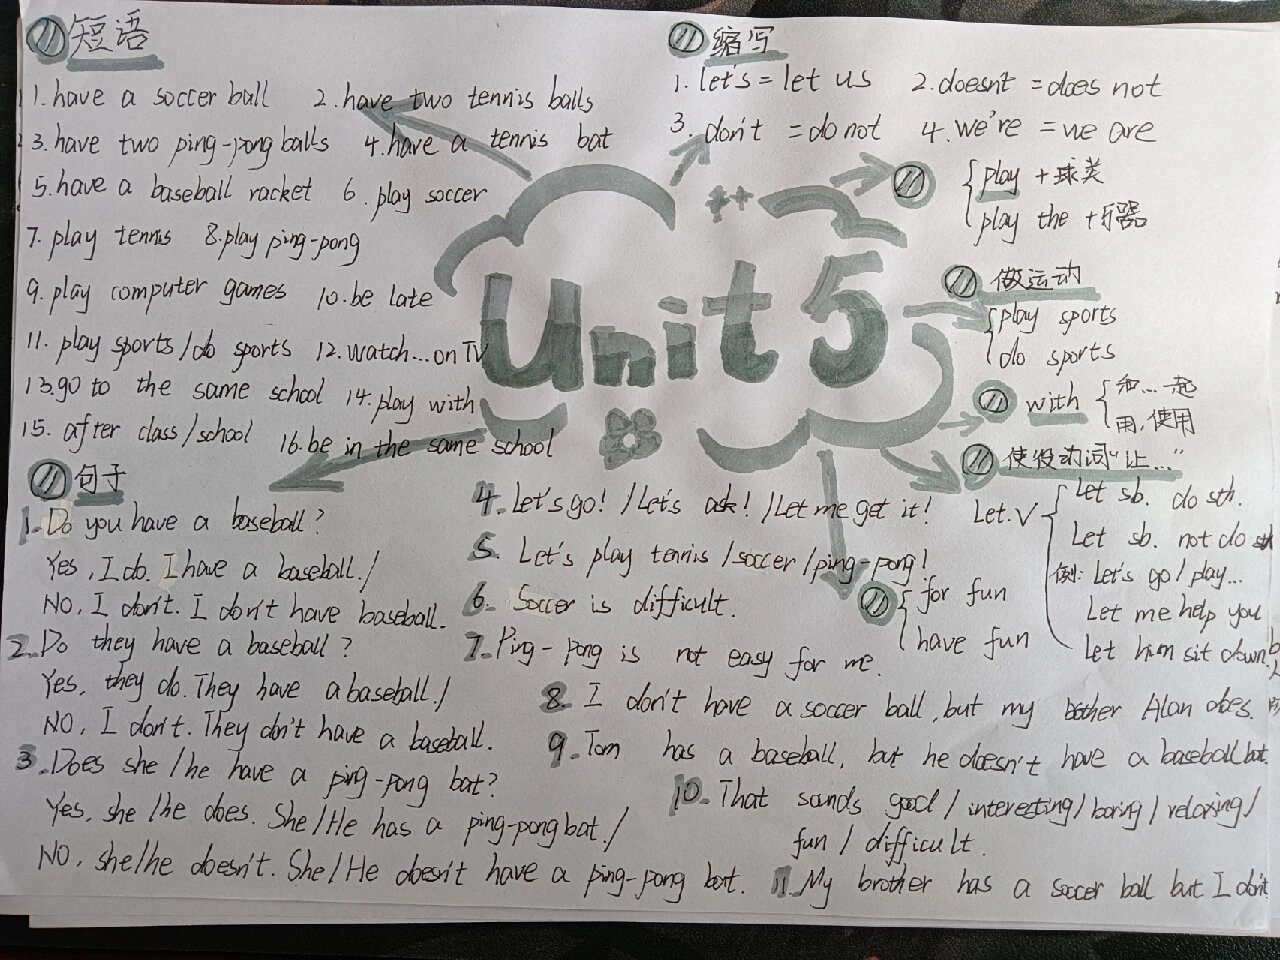 短语
1. have a soccer ball 2. have two tennis balls
3. have two ping-pong balls 4. have a tennis bat
5. have a baseball racket 6. play soccer
7. play tennis 8. play ping-pong
9. play computer games 10. be late
11. play sports/do sports 12. watch...on TV
13. go to the same school 14. play with
15. after class/school 16. be in the same school
缩写
1. let's = let us 2. doesn't = does not
3. don't = do not 4. we're = we are
play + 球类
play the + 乐器
Unit 5
做运动
play sports
do sports
with
和...一起
用,使用
使役动词"让..."
Let. V
Let sb. do sth.
Let sb. not do
例: Let's go/play...
Let me help you
Let him sit down.
for fun
have fun
句子
1. Do you have a baseball?
Yes, I do. I have a baseball./
NO, I don't. I don't have baseball.
2. Do they have a baseball?
Yes, they do. They have a baseball./
NO, I don't. They don't have a baseball.
3. Does she/he have a ping-pong bat?
Yes, she/he does. She/He has a ping-pong bat./
NO, she/he doesn't. She/He doesn't have a ping-pong bat.
4. Let's go! /Let's ask! /Let me get it!
5. Let's play tennis/soccer/ping-pong!
6. Soccer is difficult.
7. Ping-pong is not easy for me.
8. I don't have a soccer ball, but my brother Alan does.
9. Tom has a baseball, but he doesn't have a baseball bat.
10. That sounds good/interesting/boring/relaxing/
fun/difficult.
11. My brother has a soccer ball but I don't